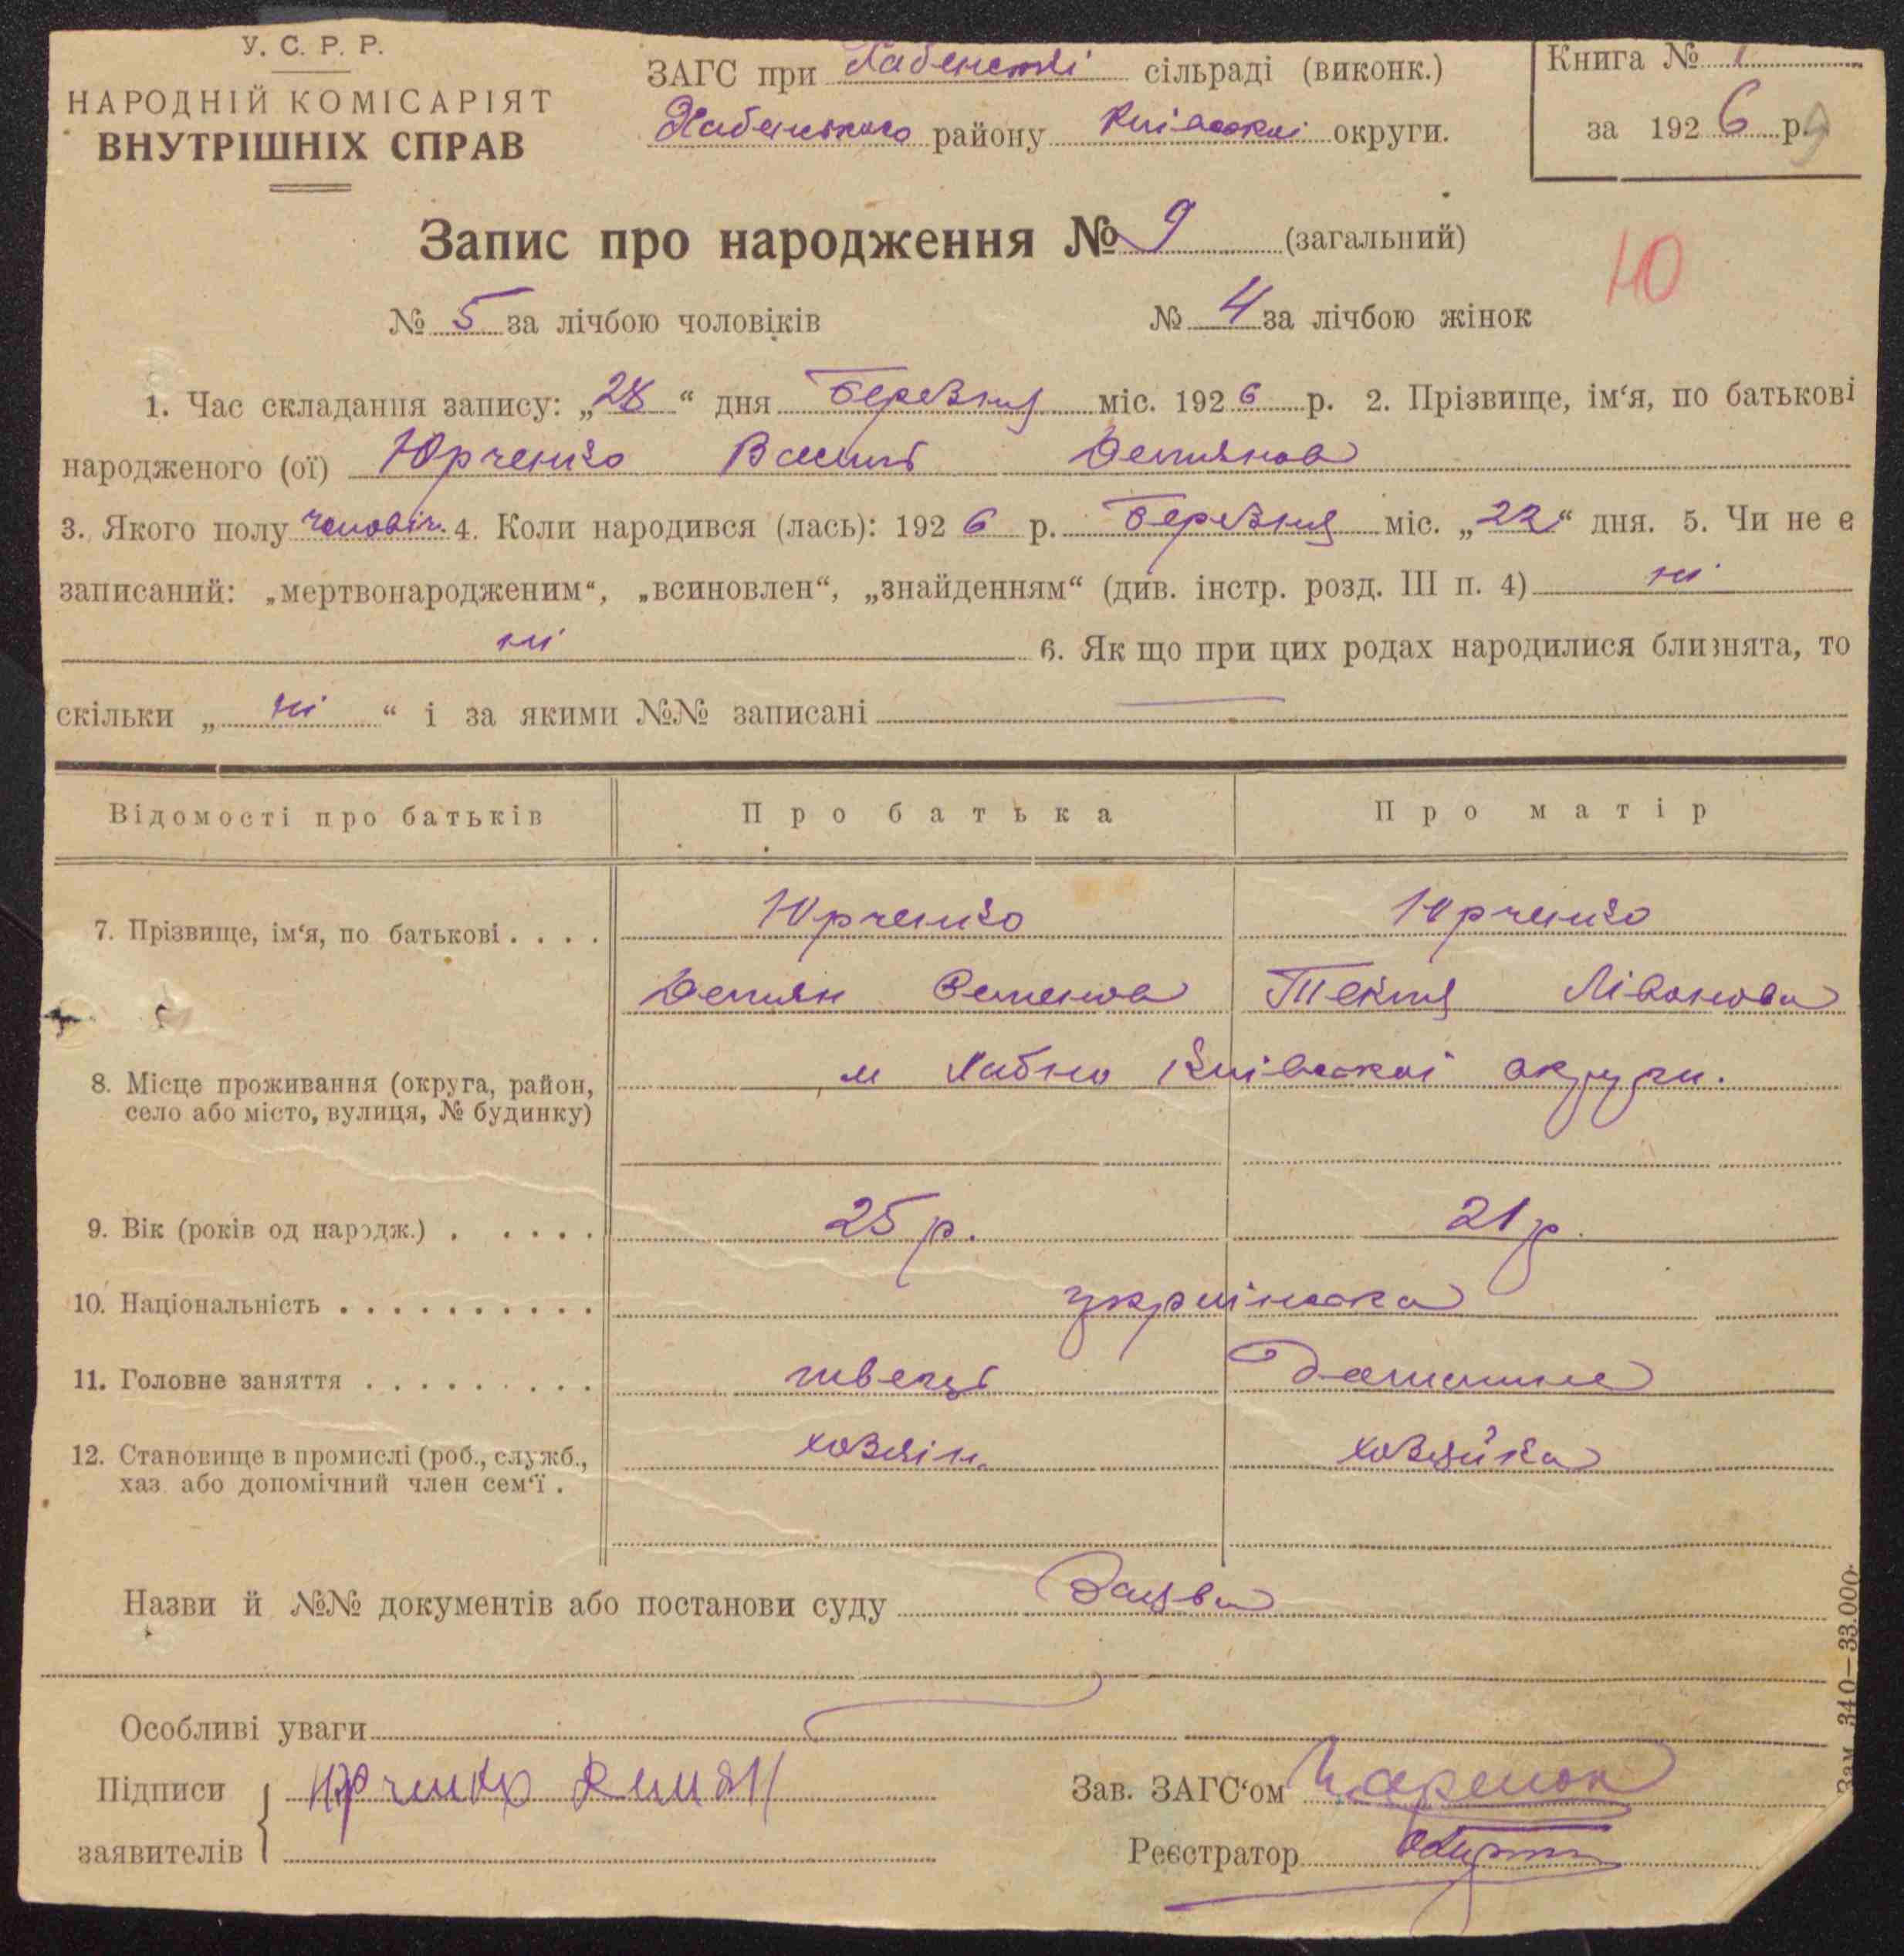 У. С. Р. Р.
НАРОДНІЙ КОМІСАРІЯТ
ВНУТРІШНІХ СПРАВ
ЗАГС при Хабенській сільраді (виконк.)
Хабенського району Київської округи.
Книга № 1
за 1926 р.
9
Запис про народження № 9 (загальний)
Ю
№ 5 за лічбою чоловіків № 4 за лічбою жінок
1. Час складання запису: „28“ дня Березня міс. 1926 р. 2. Прізвище, ім‘я, по батькові
народженого (ої) Юрченко Василь Демянов
3. Якого полу чоловіч. 4. Коли народився (лась): 1926 р. Березня міс. „22“ дня. 5. Чи не є
записаний: „мертвонародженим“, „всиновлен“, „знайденням“ (див. інстр. розд. III п. 4) ні
ні 6. Як що при цих родах народилися близнята, то
скільки „ ні “ і за якими №№ записані
Відомості про батьків Про батька Про матір
7. Прізвище, ім‘я, по батькові . . . . Юрченко Юрченко
Демян Семенов Текля Лівонова
8. Місце проживання (округа, район,
село або місто, вулиця, № будинку) м Хабно Київської округи.
9. Вік (років од народж.) . . . . . 25 р. 21 р.
10. Національність . . . . . . . . . . українська
11. Головне заняття . . . . . . . . . швець
12. Становище в промислі (роб., служб., хозяїн. хозяйка
хаз. або допомічний член сем‘ї .
Назви й №№ документів або постанови суду Заява
Особливі уваги
Підписи Юрченко Демян
заявителів
Зав. ЗАГС‘ом
Реєстратор
Зам. 340—33.000